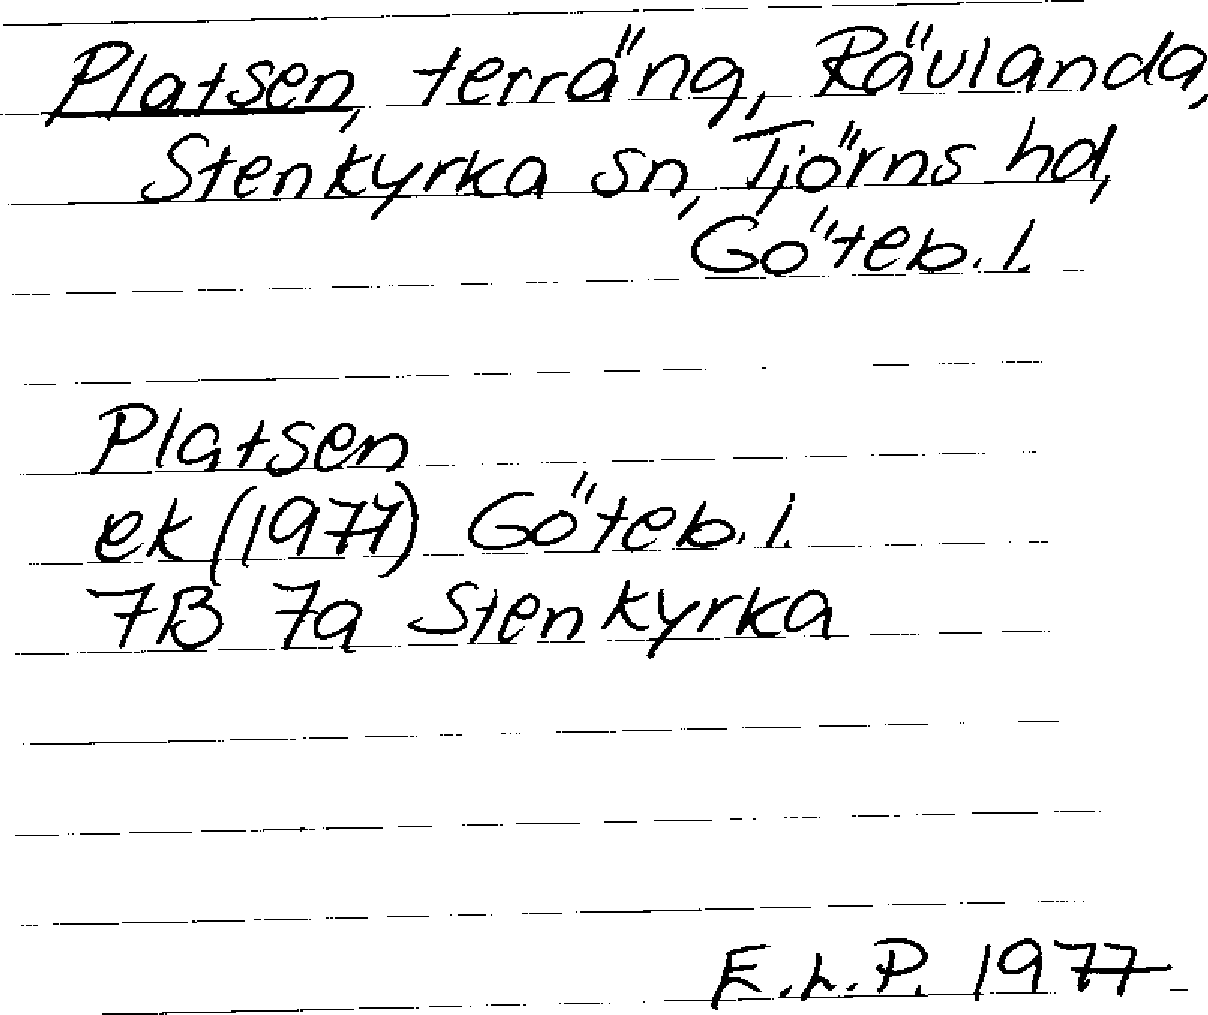 Platsen, terräng, Rävlanda,
Stenkyrka sn, Tjörns hd,
Göteb. l.
Platsen
ek (1977) Göteb. l.
7B 7a Stenkyrka
E.L.P. 1977